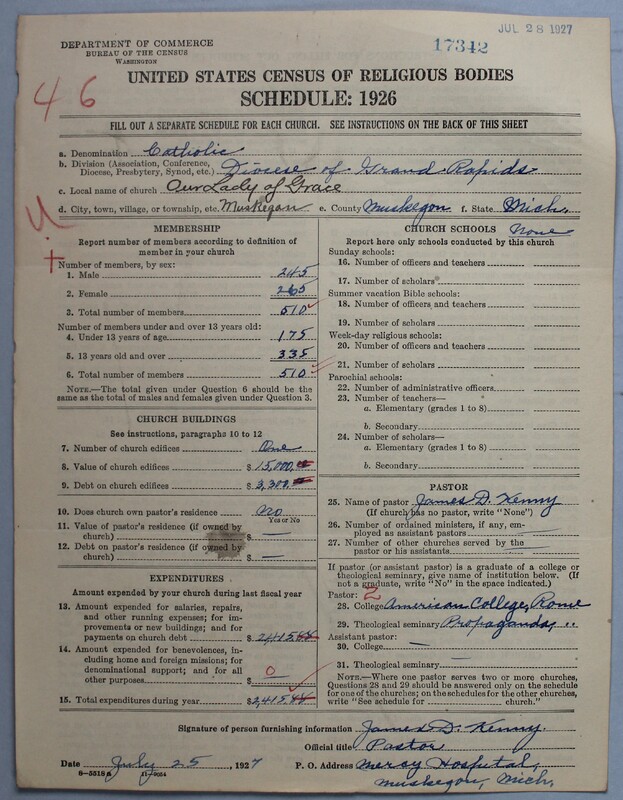 JUL 28 1927
17342
DEPARTMENT OF COMMERCE
BUREAU OF THE CENSUS
WASHINGTON
UNITED STATES CENSUS OF RELIGIOUS BODIES
SCHEDULE: 1926
46
FILL OUT A SEPARATE SCHEDULE FOR EACH CHURCH. SEE INSTRUCTIONS ON THE BACK OF THIS SHEET
a. Denomination Catholic
b. Division (Association, Conference, Diocese, Presbytery, Synod, etc.) Diocese of Grand Rapids
c. Local name of church Our Lady of Grace
d. City, town, village, or township, etc. Muskegan e. County Muskegon f. State Mich.
U
MEMBERSHIP
Report number of members according to definition of
member in your church
Number of members, by sex:
1. Male 245
2. Female 265
3. Total number of members 510
Number of members under and over 13 years old:
4. Under 13 years of age 175
5. 13 years old and over 335
6. Total number of members 510
NOTE.—The total given under Question 6 should be
same as the total of males and females given under Question 3.
CHURCH BUILDINGS
See instructions, paragraphs 10 to 12
7. Number of church edifices One
8. Value of church edifices $ 15,000.
9. Debt on church edifices $ 3,300.
10. Does church own pastor's residence No
Yes or No
11. Value of pastor's residence (if owned by
church) $ —
12. Debt on pastor's residence (if owned by
church) $ —
EXPENDITURES
Amount expended by your church during last fiscal year
13. Amount expended for salaries, repairs,
and other running expenses; for im-
provements or new buildings; and for
payments on church debt $ 2415.44
14. Amount expended for benevolences, in-
cluding home and foreign missions; for
denominational support; and for all
other purposes $ 0
15. Total expenditures during year $ 2,415.44
CHURCH SCHOOLS None
Report here only schools conducted by this church
Sunday schools:
16. Number of officers and teachers
17. Number of scholars
Summer vacation Bible schools:
18. Number of officers and teachers
19. Number of scholars
Week-day religious schools:
20. Number of officers and teachers
21. Number of scholars
Parochial schools:
22. Number of administrative officers
23. Number of teachers—
a. Elementary (grades 1 to 8)
b. Secondary
24. Number of scholars—
a. Elementary (grades 1 to 8)
b. Secondary
PASTOR
25. Name of pastor James D. Kenny
(If church has no pastor, write "None")
26. Number of ordained ministers, if any, em-
ployed as assistant pastors —
27. Number of other churches served by the
pastor or his assistants —
If pastor (or assistant pastor) is a graduate of a college or
theological seminary, give name of institution below. (If
not a graduate, write "No" in the space indicated.)
Pastor: 2
28. College American College, Rome
29. Theological seminary Propaganda, "
Assistant pastor:
30. College —
31. Theological seminary —
NOTE.—Where one pastor serves two or more churches,
Questions 28 and 29 should be answered only on the schedule
for one of the churches; on the schedules for the other churches,
write "See schedule for church."
Signature of person furnishing information James D. Kenny
Official title Pastor
Date July 25, 1927 P. O. Address Mercy Hospital,
Muskegon, Mich.
8-5518a 11-9054